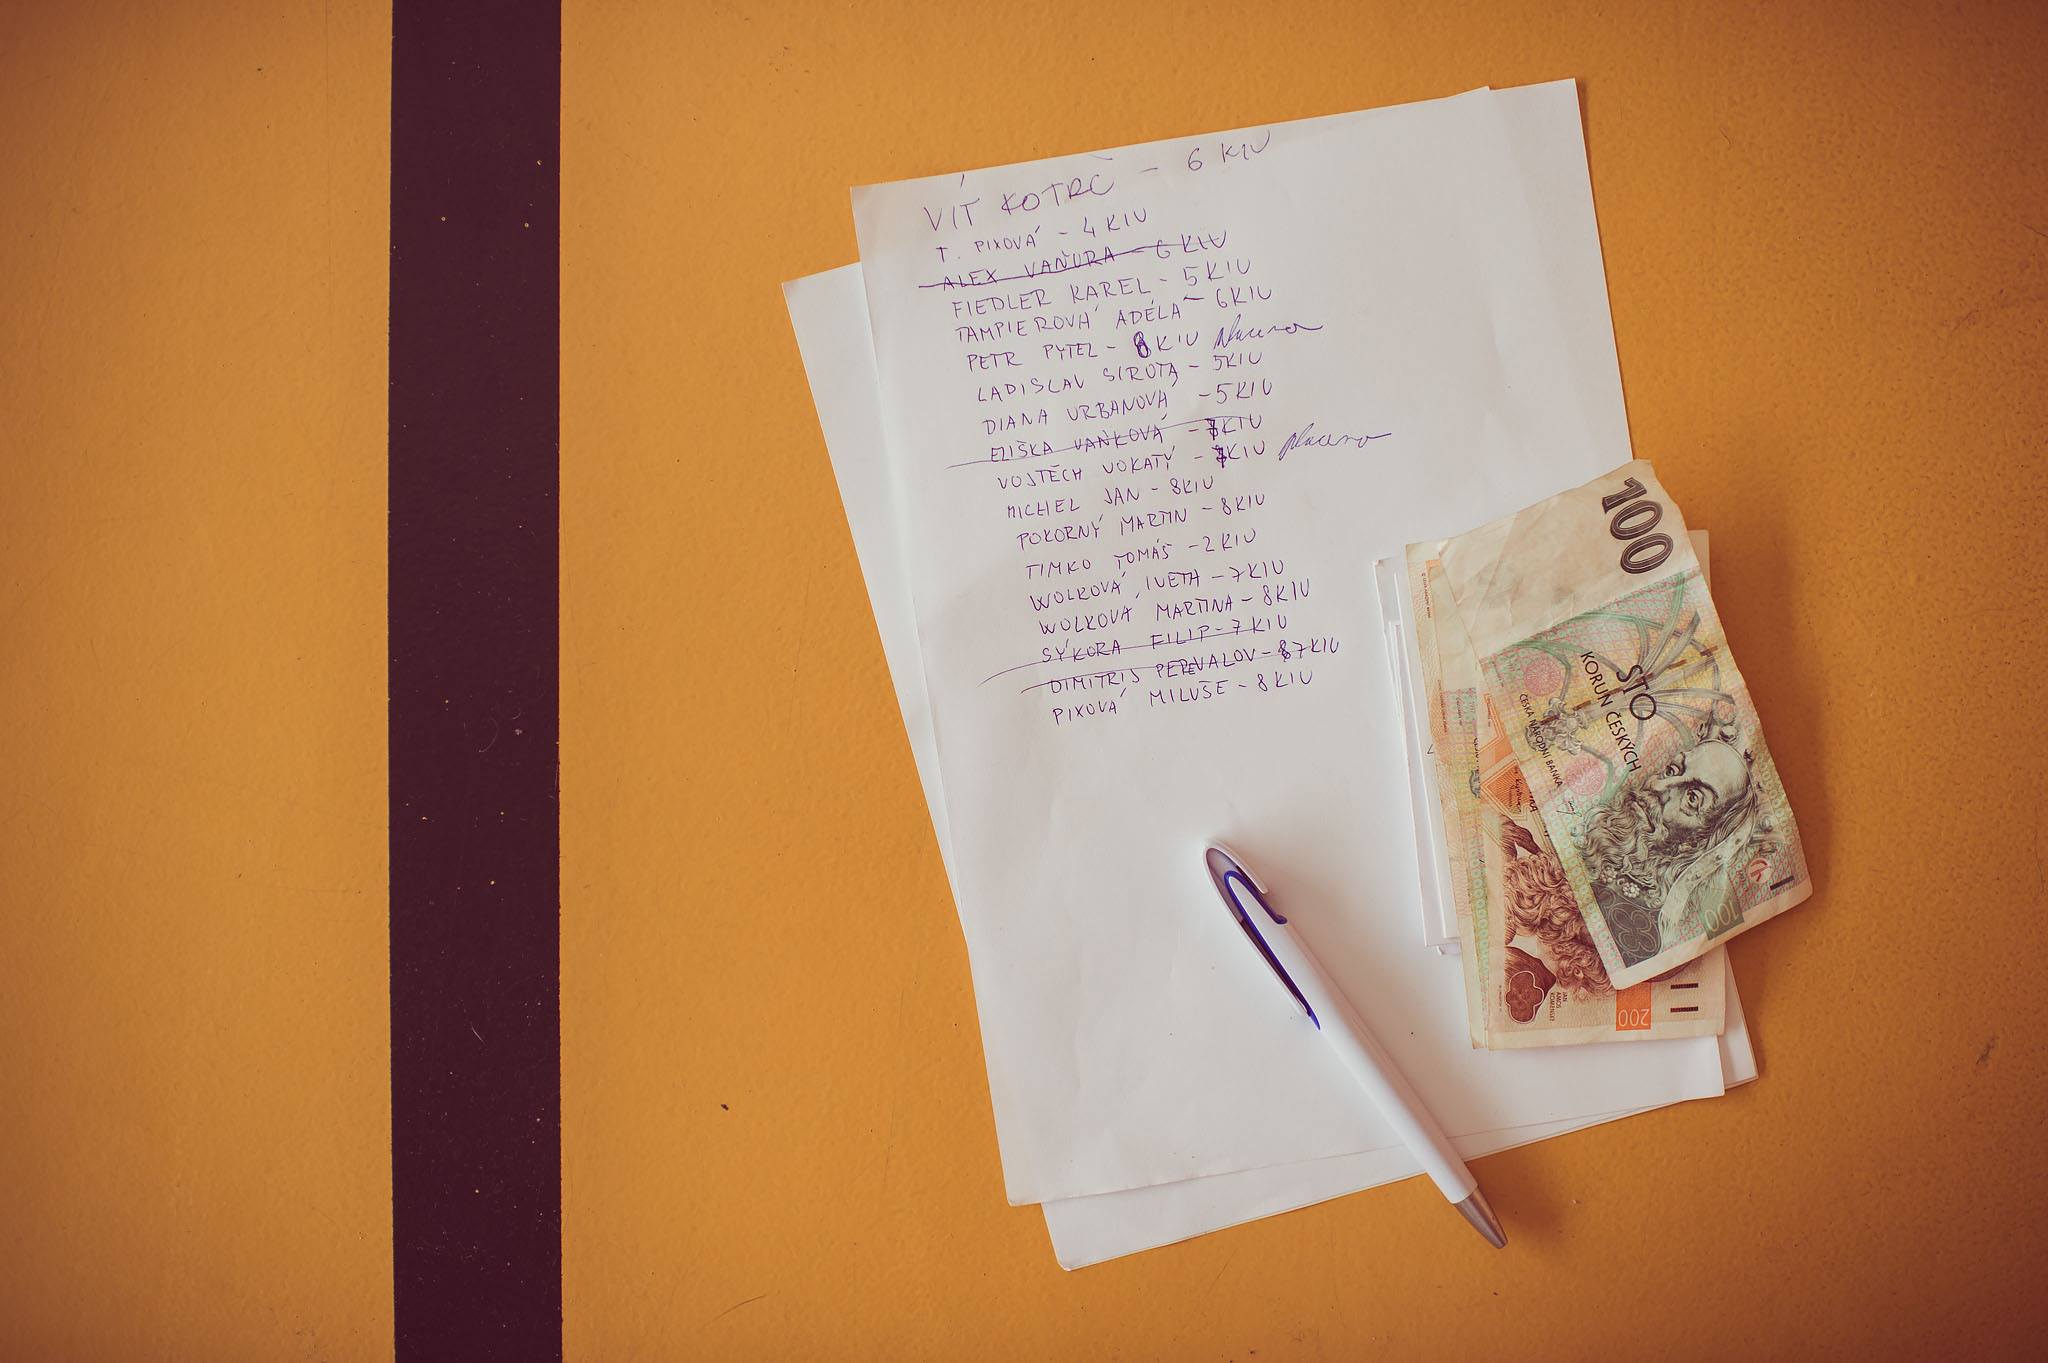 VÍT KOTRČ - 6 KIU
T. PIXOVÁ - 4 KIU
ALEX VAŇURA - 6 KIU
FIEDLER KAREL - 5 KIU
TAMPIEROVÁ ADÉLA - 6 KIU
PETR PYTEL - 8 KIU placeno
LADISLAV SIROTA - 5 KIU
DIANA URBANOVÁ - 5 KIU
ELIŠKA VAŇKOVÁ - KIU
VOJTĚCH VOKATÝ - KIU placeno
MICHEL JAN - 8 KIU
POKORNÝ MARTIN - 8 KIU
TIMKO TOMÁŠ - 2 KIU
WOLKOVÁ IVETA - 7 KIU
WOLKOVÁ MARTINA - 8 KIU
SÝKORA FILIP - 7 KIU
DIMITRIJ PEREVALOV - 7 KIU
PIXOVÁ MILUŠE - 8 KIU
100
STO
KORUN ČESKÝCH
ČESKÁ NÁRODNÍ BANKA
100
JAN
AMOS
KOMENSKÝ
200